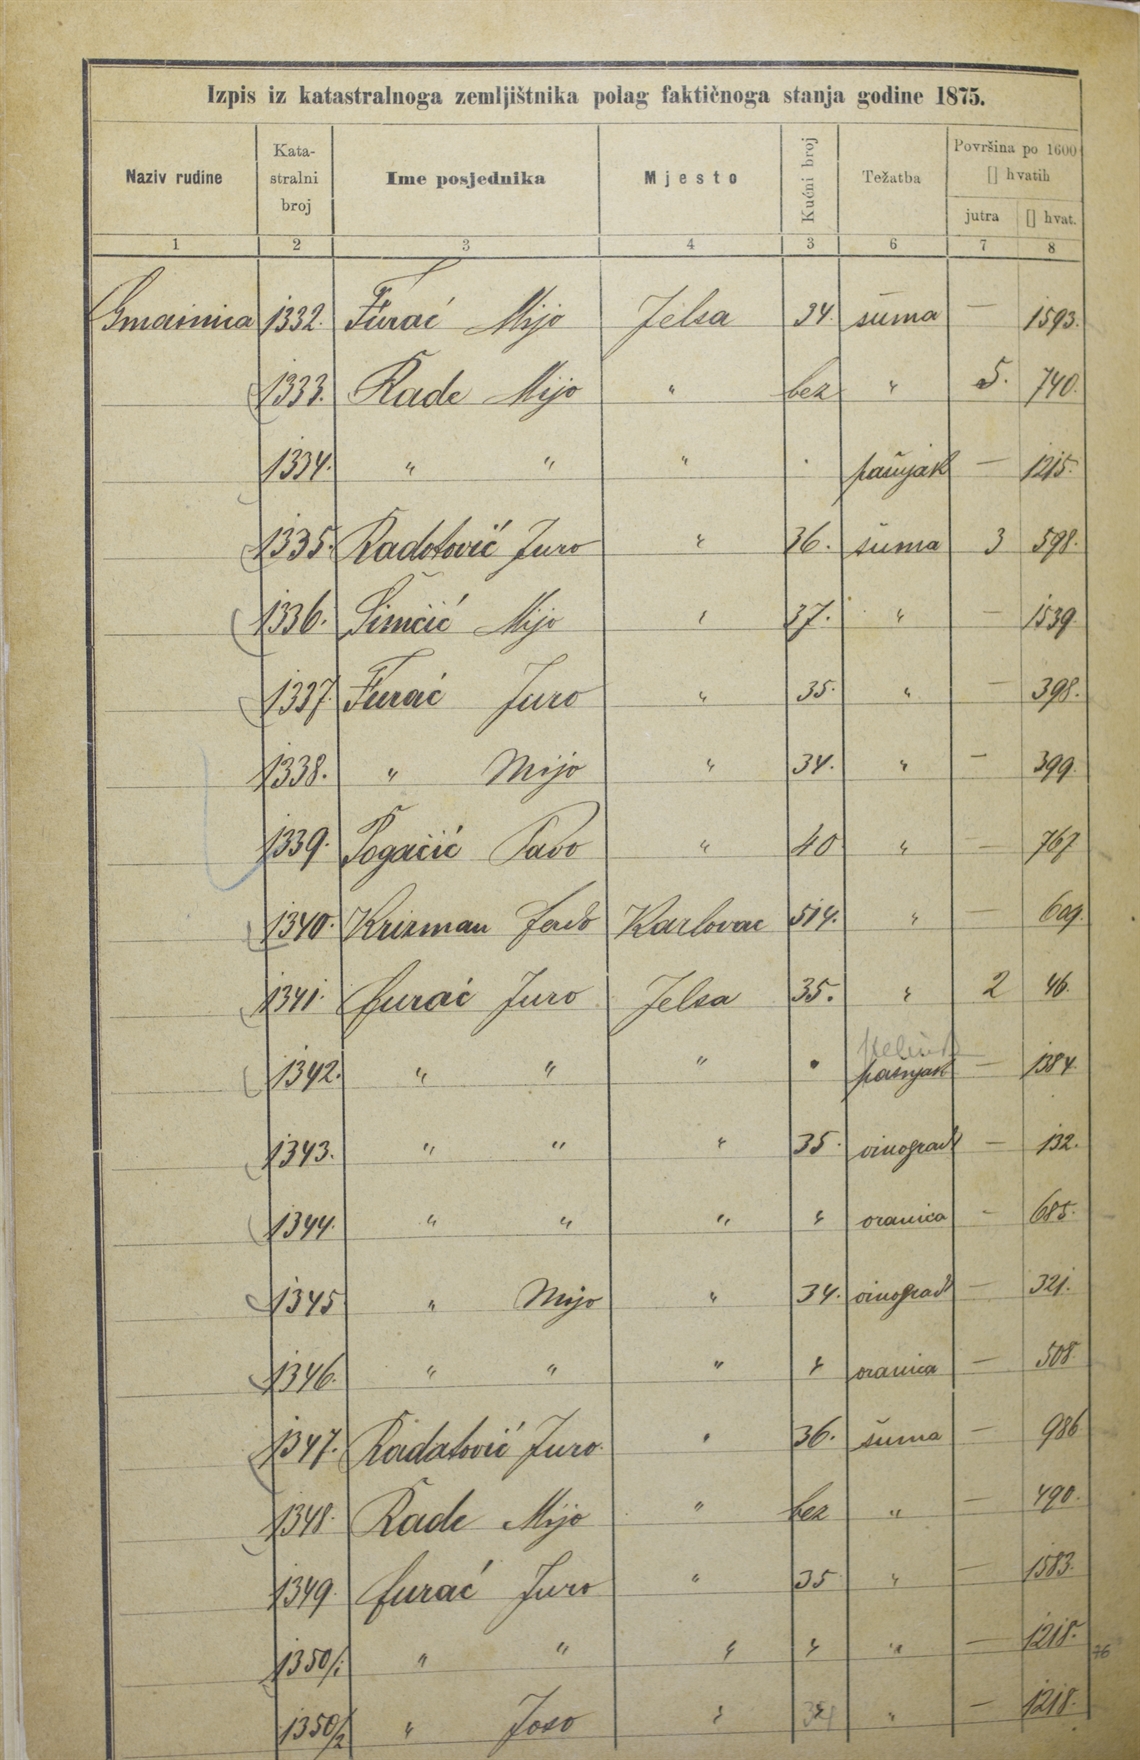 Izpis iz katastralnoga zemljištnika polag faktičnoga stanja godine 1875.
Naziv rudine Kata- stralni broj Ime posjednika Mjesto Kućni broj Težatba Površina po 1600 [] hvatih
jutra [] hvat.
1 2 3 4 3 6 7 8
Gmainica 1332. Furać Mijo Jelsa 34. šuma — 1593.
1333. Rade Mijo " bez " 5. 740.
1334. " " " . pašnjak — 1215.
1335. Radotović Juro " 36. šuma 3 598.
1336. Šimčić Mijo " 37. " — 1539.
1337. Furać Juro " 35. " — 398.
1338. " Mijo " 34. " — 399.
1339. Pogačić Pavo " 40 " — 767
1340. Krizman Karlovac 514. " — 609.
1341. Furać Juro Jelsa 35. " 2 46.
1342. " " " . pašnjak — 1384.
1343. " " " 35. vinograd — 132.
1344. " " " " oranica — 685.
1345 " Mijo " 34. vinograd — 321.
1346. " " " " oranica — 508.
1347. Radatović Juro. " 36. šuma — 986
1348. Rade Mijo " bez " — 490.
1349. Furać Juro " 35 " — 1583.
1350/1 " " " " " — 1218. 76
1350/2 " Joso " 34 " — 1218.